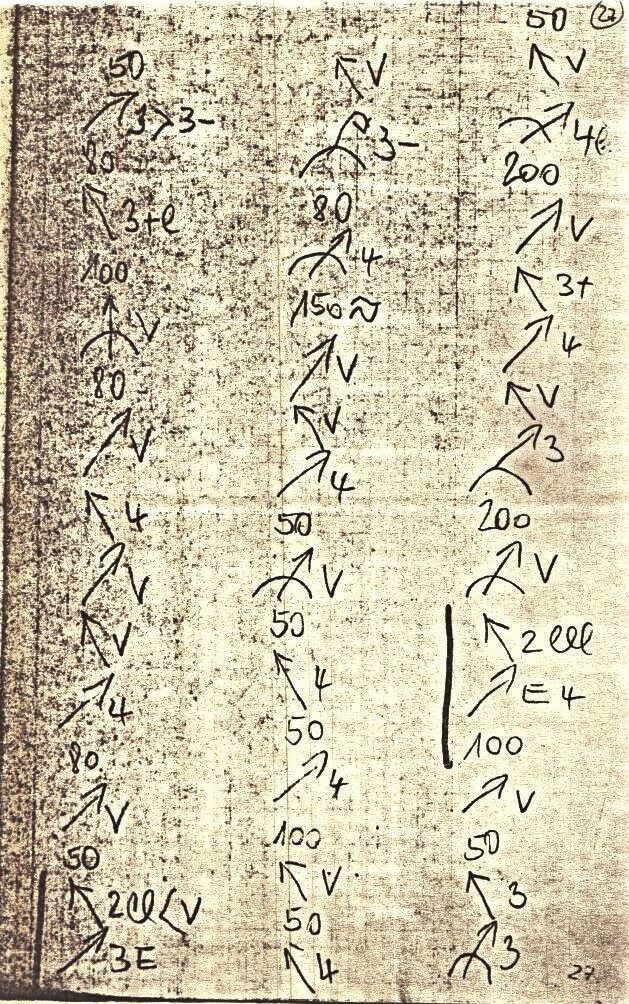 50
3>3-
80
3+l
100
V
80
V
4
V
V
4
80
V
50
2lll<V
3E
V
3-
80
4
150≈
V
V
4
50
V
50
4
50
4
100
V
50
4
50
V
4l
200
V
3+
4
V
3
200
V
2lll
E4
100
V
50
3
3
27
27